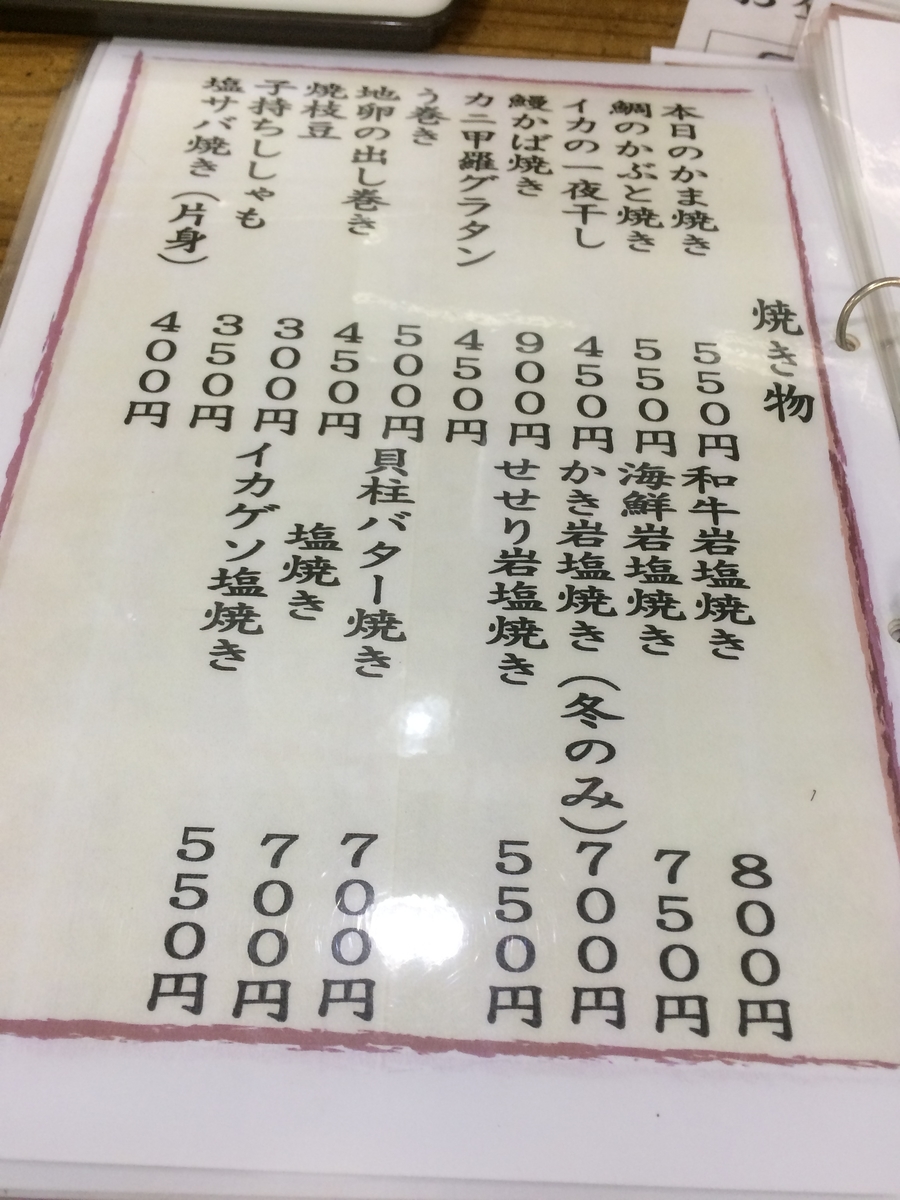 焼き物
本日のかま焼き 550円
鯛のかぶと焼き 550円
イカの一夜干し 450円
鰻かば焼き 900円
カニ甲羅ゲラタン 450円
う巻き 500円
地卵の出し巻き 450円
焼枝豆 300円
子持ちししゃも 350円
塩サバ焼き（片身） 400円
和牛岩塩焼き 800円
海鮮岩塩焼き 750円
かき岩塩焼き（冬のみ） 700円
せせり岩塩焼き 550円
貝柱バター焼き 700円
塩焼き 700円
イカゲソ塩焼き 550円